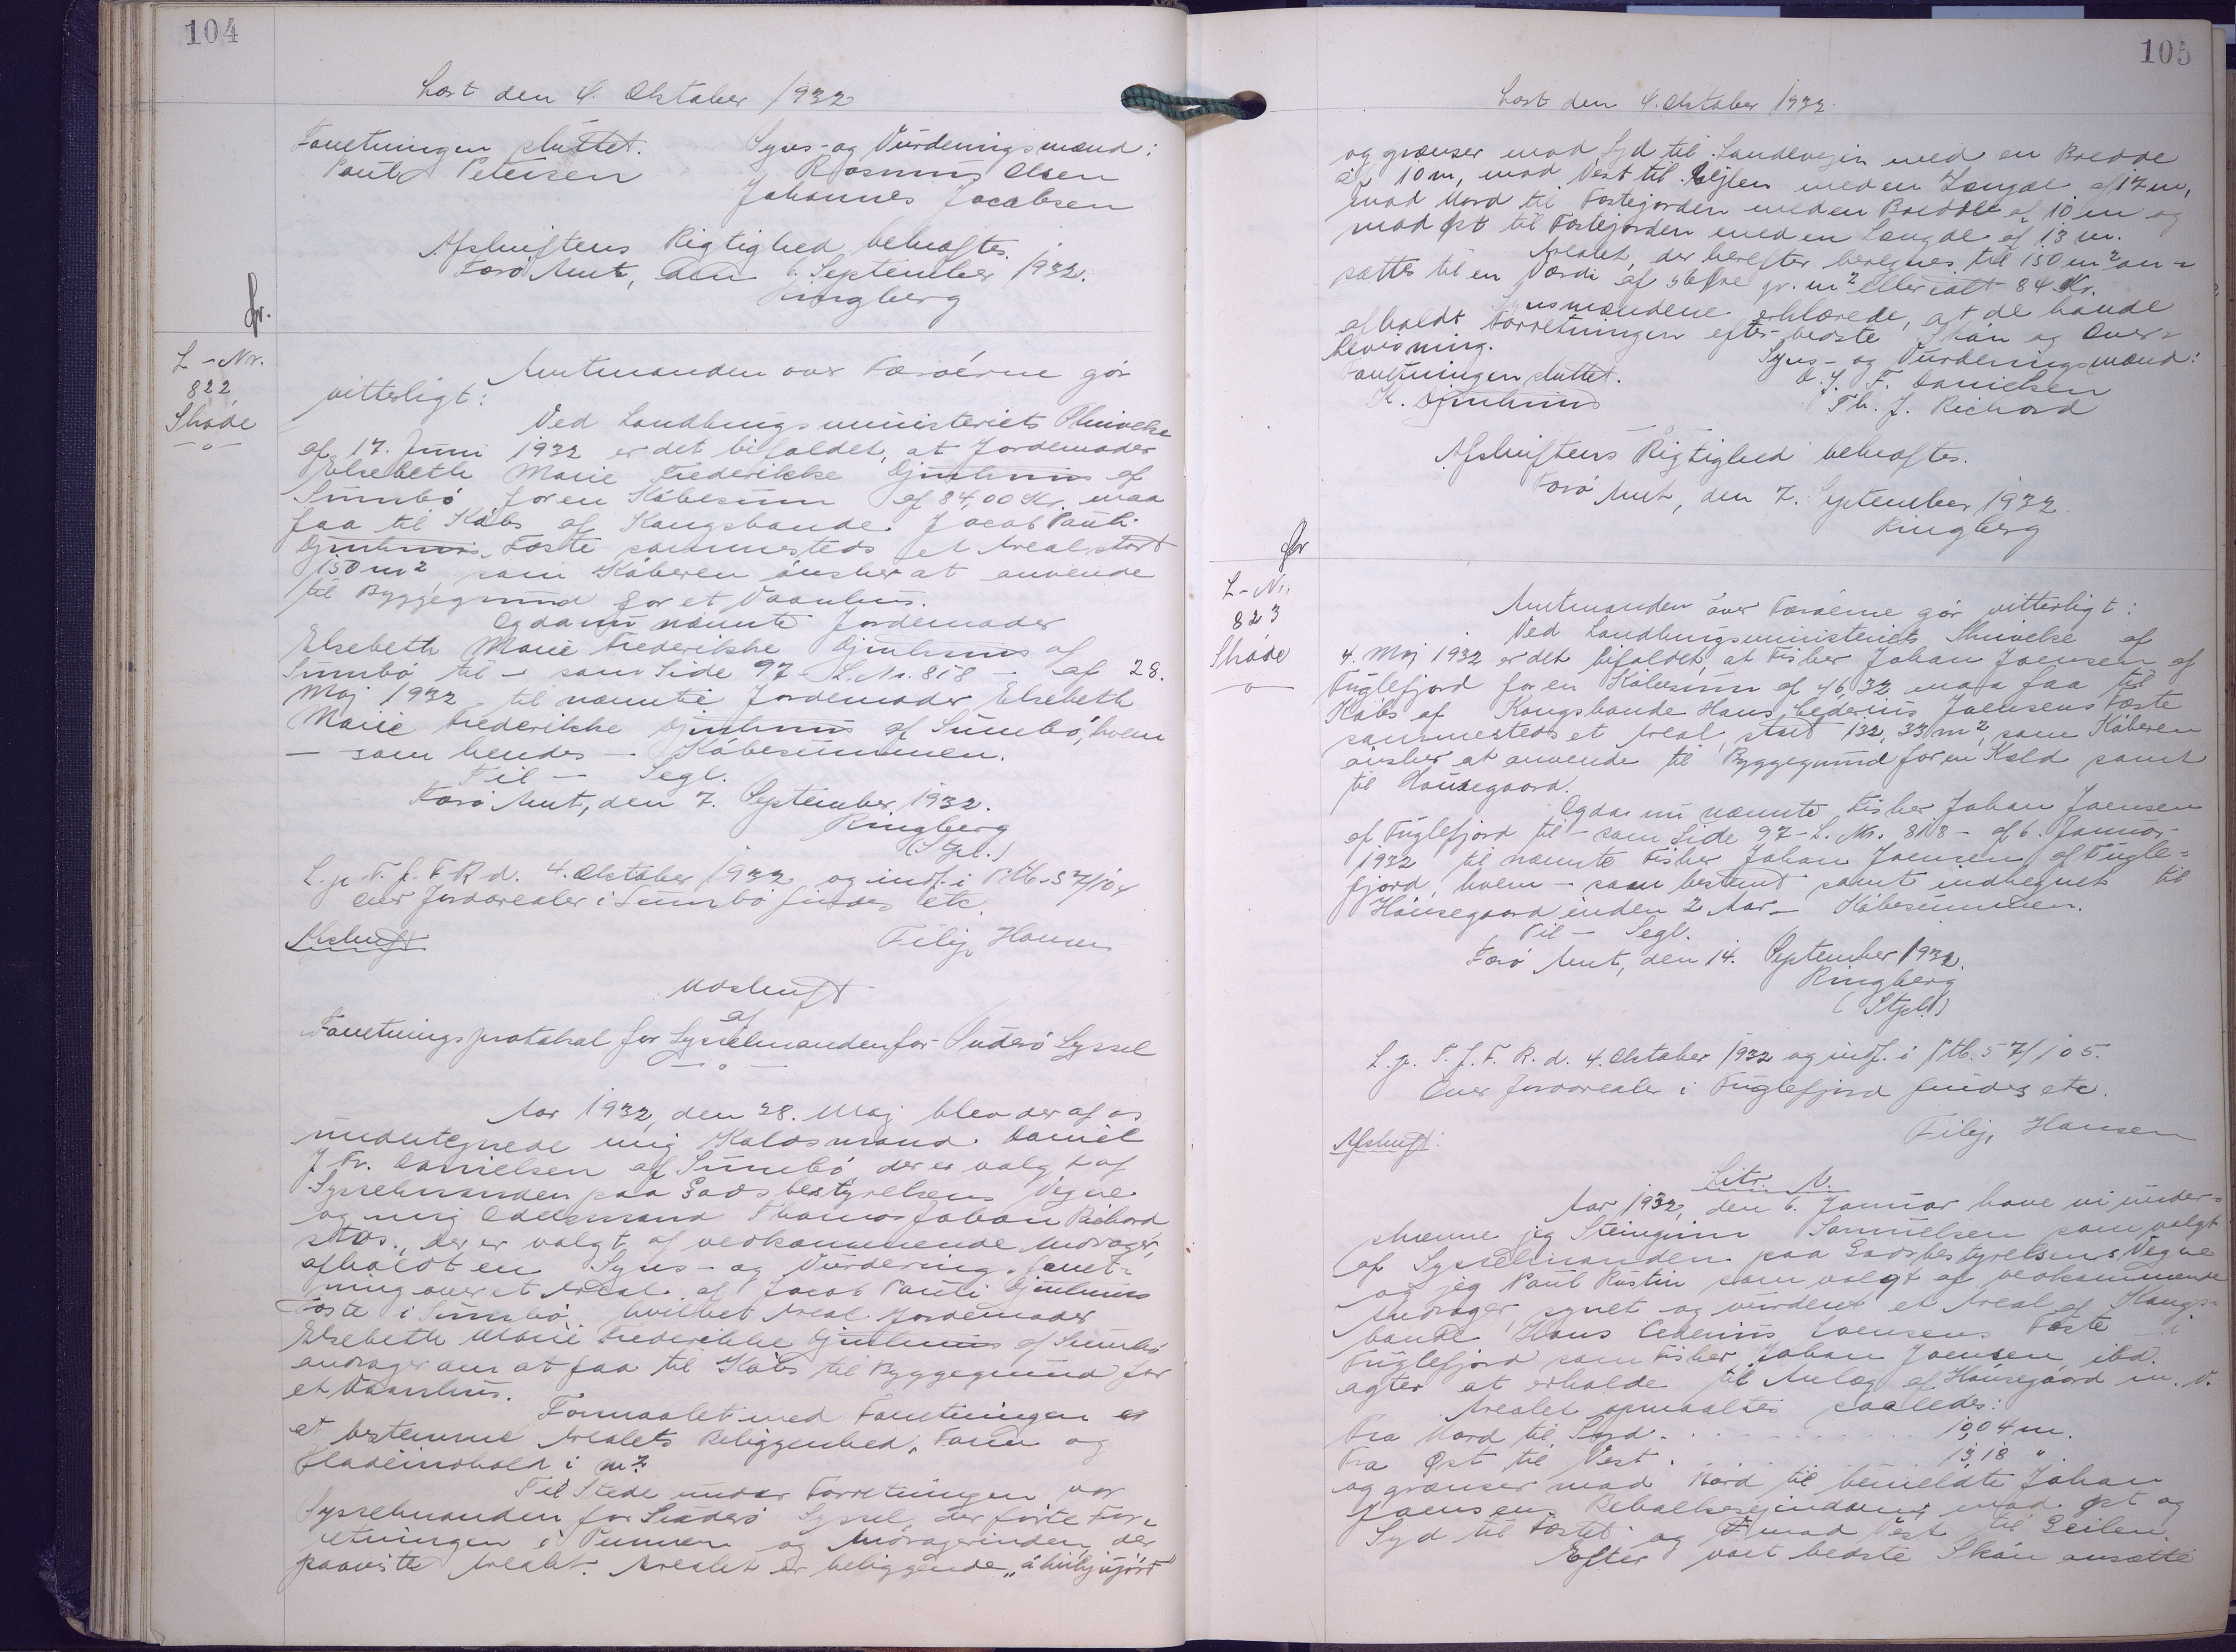 104
Læst den 4. Oktober 1932
Forretningen sluttet. Syns- og Vurderingsmænd:
Poul Petersen Rasmus Olsen
Johannes Jacobsen
Afskriftens Rigtighed bekræftes.
Færø Amt, den 6. September 1932.
Ringberg
fr.
L-Nr.
822
Skøde
Amtmanden over Færøerne gör
vitterligt:
Ved Landbrugsministeriets Skrivelse
af 17. Juni 1932 er det bifaldet, at Jordemoder
Elsebeth Marie Frederikke Djurhuus af
Sumbö for en Köbesum af 84,00 Kr. maa
faa til Köbs af Kongsbonde Jacob Pauli
Djurhuus Fæste sammesteds et Areal, stort
150 m², som Köberen önsker at anvende
til Byggegrund for et Vaanhus.
Og da nu nævnte Jordemoder
Elsebeth Marie Frederikke Djurhuus af
Sumbö til - som Side 97 L.Nr. 818 - af 28.
Maj 1932 til nævnte Jordemoder Elsebeth
Marie Frederikke Djurhuus af Sumbö, hvem
- som hendes - Köbesummen.
Til - Segl.
Færö Amt, den 7. September 1932.
Ringberg
(Stpl.)
L. p. T. f. F. R d. 4. Oktober 1932 og indf. i Ptb. 57/104
Over Jordarealer i Sumbö findes etc.
Filip Hansen
Afskrift
Udskrift
af
Forretningsprotokol for Sysselmanden for Suderö Syssel
Aar 1932, den 28. Maj blev der af os
undertegnede mig Kaldsmand Daniel
J. Fr. Danielsen af Sumbö, der er valgt af
Sysselmanden paa Godsbestyrelsens Vegne
og mig Odelsmand Thomas Johan Richard
stds., der er valgt af vedkommende Andrager,
afholdt en Syns- og Vurderingsforret-
ning over et Areal af Jacob Pauli Djurhuus
Fæste i Sumbö hvilket Areal Jordemoder
Elsebeth Marie Frederikke Djurhuus af Sumbö
andrager om at faa til Köbs til Byggegrund for
et Vaanhus.
Formaalet med Forretningen er
at bestemme Arealets Beliggenhed, Form og
Fladeindhold i m².
Til Stede under Forretningen var
Sysselmanden for Suderö Syssel, der förte For-
retningen i Pennen og Andragerinden, der
paaviste Arealet. Arealet er beliggende
105
Læst den 4. Oktober 1932.
og grænser mod Syd til Landevejen med en Bredde
af 10 m, mod Vest til Vejlen med en Længde af 17 m,
mod Nord til Fæstejorden med en Bredde af 10 m og
mod Øst til Fæstejorden med en Længde af 13 m.
Arealet, der herefter beregnes til 150 m² an-
sættes til en Værdi af 56 Øre pr. m² eller ialt 84 Kr.
Synsmændene erklærede, at de havde
afholdt Forretningen efter bedste Skön og Over-
bevisning.
Forretningen sluttet. Syns- og Vurderingsmænd:
K. Djurhuus D. J. F. Danielsen
Th. J. Richard
Afskriftens Rigtighed bekræftes.
Færö Amt, den 7. September 1932
Ringberg
fr
L-Nr.
823
Skøde
Amtmanden over Færöerne gör vitterligt:
Ved Landbrugsministeriets Skrivelse af
4. Maj 1932 er det bifaldet, at Fisker Johan Joensen af
Fuglefjord for en Köbesum af 46,32 maa faa til
Köbs af Kongsbonde Hans Cederius Joensens Fæste
sammesteds et Areal, stort 132,33 m², som Köberen
önsker at anvende til Byggegrund for en Kæld samt
til Havegaard.
Og da nu nævnte Fisker Johan Joensen
af Fuglefjord til - som Side 97 - L. Nr. 818 - af 6. Januar
1932 til nævnte Fisker Johan Joensen af Fugle-
fjord, hvem - som bestemt samt indhegnet til
Havegaard inden 2 Aar - Köbesummen.
Til - Segl.
Færö Amt, den 14. September 1932.
Ringberg
(Stpl.)
L. p. T. f. F. R. d. 4. Oktober 1932 og indf. i Ptb. 57/105.
Over Jordarealer i Fuglefjord findes etc.
Filip Hansen
Afskrift:
Litr. A.
Aar 1932, den 6. Januar have vi under-
skrevne jeg Steingrim Samuelsen som valgt
af Sysselmanden paa Godsbestyrelsens Vegne
og jeg Poul Rustin som valgt af vedkommende
Andrager, synet og vurderet et Areal af Kongs-
bonde Hans Cederius Joensens Fæste i
Fuglefjord som Fisker Johan Joensen ibd.
agter at erholde til Anlæg af Havegaard m. v.
Arealet opmaaltes saaledes:
Fra Nord til Syd . . . . . . 10,04 m.
Fra Øst til Vest . . . . . . 13,18 "
og grænser mod Nord til bemeldte Johan
Joensens Beboelsesejendom, mod Øst og
Syd til Fæstet og mod Vest til Geilen.
Efter vort bedste Skön ansætte